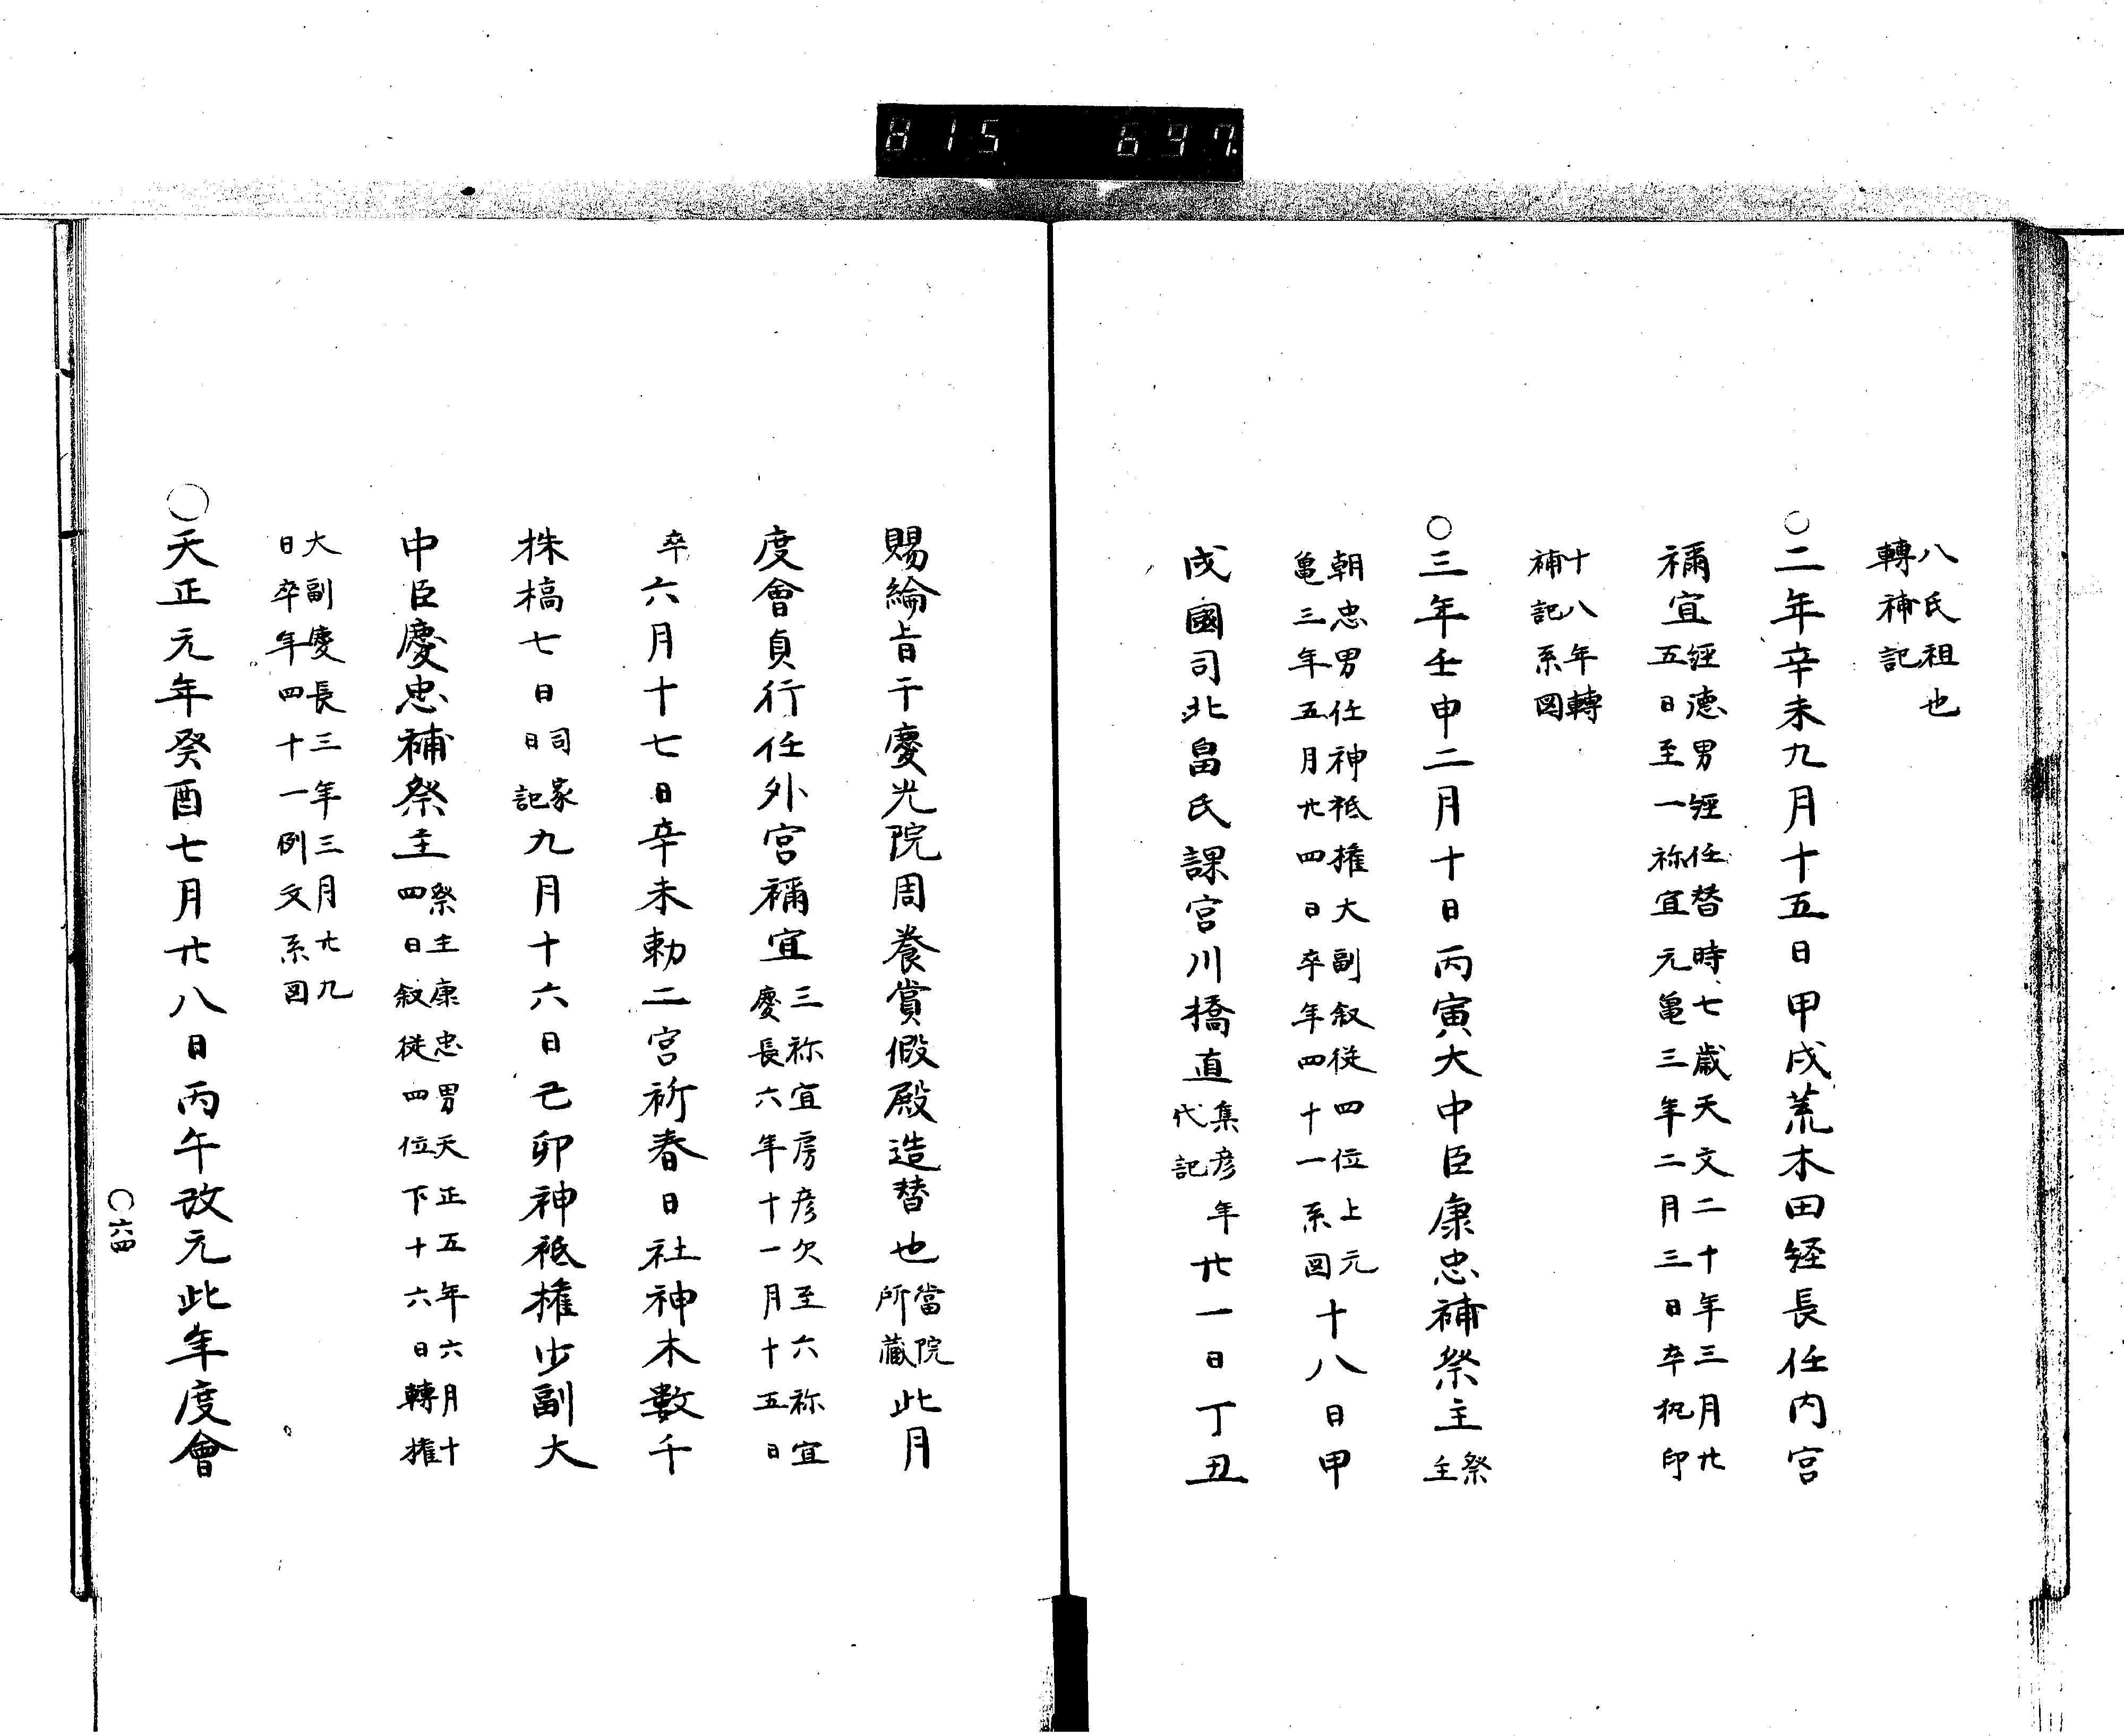 815 647.
八氏祖也
轉補記
○二年辛未九月十五日甲戌荒木田経長任内宮
禰宜
経德男経任替時七歳天文二十年三月廿
五日至一祢宜元亀三年二月三日卒祝印
十八年轉
補記系図
○三年壬申二月十日丙寅大中臣康忠補祭主
祭
主
朝忠男任神祇権大副叙従四位上元
亀三年五月廿四日卒年四十一系図
十八日甲
戌國司北畠氏課宮川橋直
集彦年
代記
廿一日丁丑
賜綸旨于慶光院周養賞假殿造替也
當院
所藏
此月
度會貞行任外宮禰宜
三祢宜房彦欠至六祢宜
慶長六年十一月十五日
卒
六月十七日辛未勅二宮祈春日社神木數千
株槁七日
司家
日記
九月十六日己卯神祇権少副大
中臣慶忠補祭主
祭主康忠男天正五年六月十
四日叙従四位下十六日轉権
大副慶長三年三月廿九
日卒年四十一例文系図
○天正元年癸酉七月廿八日丙午改元此年度會
○六四